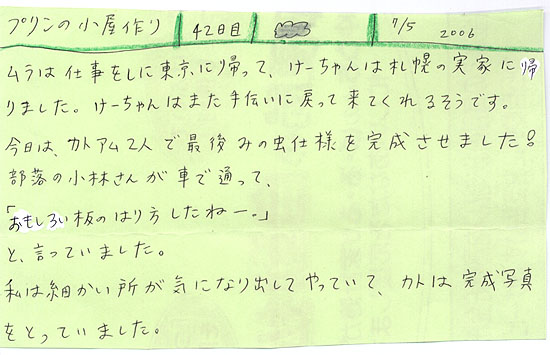 プリンの小屋作り 42日目 7/5 2006
ムラは仕事をしに東京に帰って、けーちゃんは札幌の実家に帰
りました。けーちゃんはまた手伝いに戻って来てくれるそうです。
今日は、カトアム2人で最後みの虫仕様を完成させました!
部落の小林さんが車で通って、
「おもしろい板のはり方したねー。」
と、言っていました。
私は細かい所が気になり出してやっていて、カトは完成写真
をとっていました。